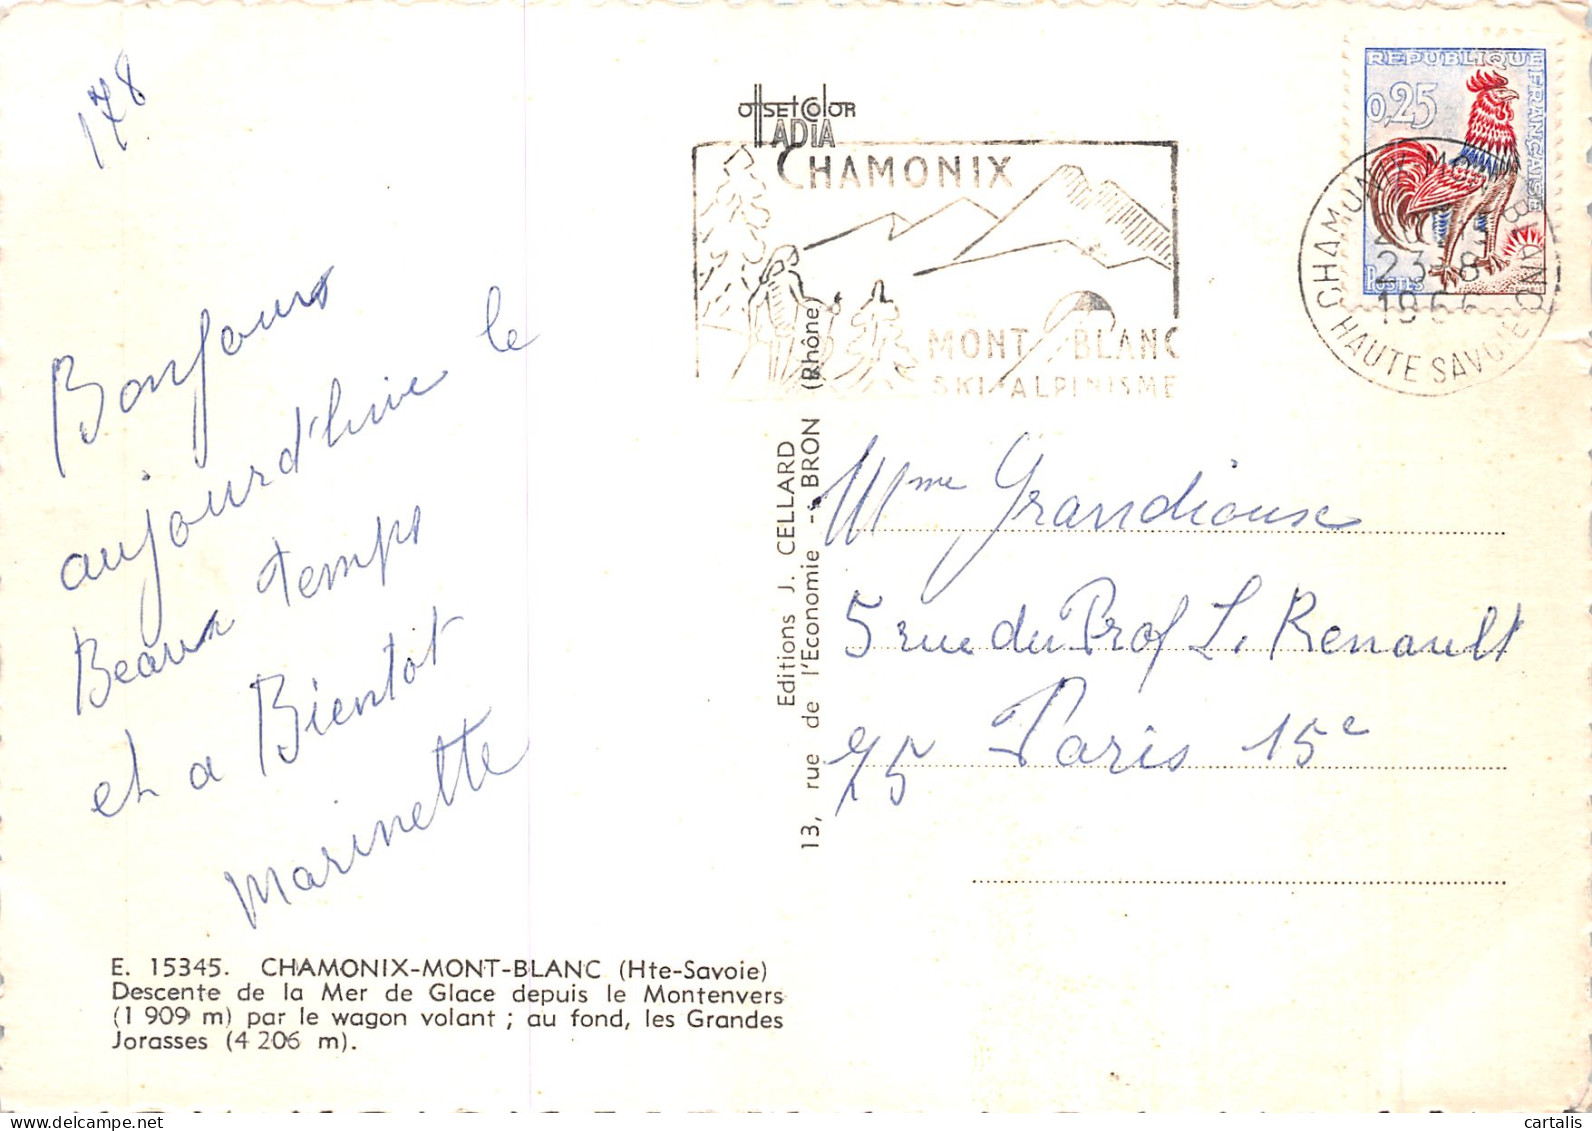 178
Bonjours
aujourd'huie le
Beaux temps
et a Bientot
Marinette
E. 15345. CHAMONIX-MONT-BLANC (Hte-Savoie)
Descente de la Mer de Glace depuis le Montenvers
(1 909 m) par le wagon volant ; au fond, les Grandes
Jorasses (4 206 m).
OffSETCOlOR
IADIA
CHAMONIX
MONT-BLANC
SKI-ALPINISME
Editions J. CELLARD
13, rue de l'Economie - BRON (Rhône)
REPUBLIQUE FRANÇAISE
0,25
POSTES
CHAMONIX MONT BLANC
23-8
1966
HAUTE SAVOIE
Mme Grandiouse
5 rue du Prof L. Renault
75 Paris 15e
cartalis
delcampe.net